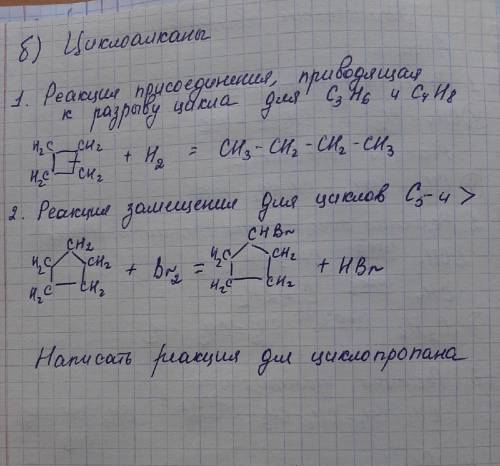 б) Циклоалканы
1. Реакция присоединения, приводящая
к разрыву цикла для C3H6 и C4H8
H2C CH2
H2C CH2 + H2 = CH3-CH2-CH2-CH3
2. Реакция замещения для циклов C5-и >
CH2 CHBr
H2C CH2 + Br2 = H2C CH2 + HBr
H2C CH2 H2C CH2
Написать реакция для циклопропана